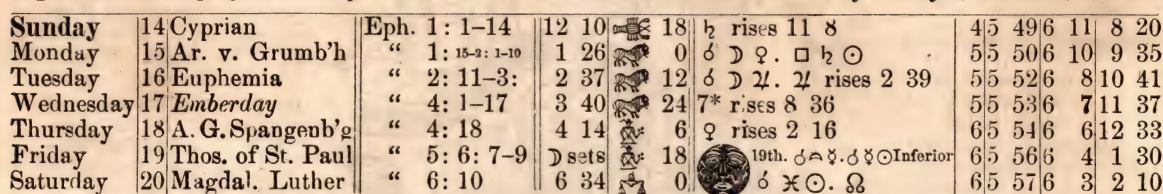 Sunday 14 Cyprian Eph. 1: 1-14 12 10 18 ♄ rises 11 8 4 5 49 6 11 8 20
Monday 15 Ar. v. Grumb'h “ 1: 15-2: 1-10 1 26 0 ☌ ☽ ♀. □ ♄ ☉ 5 5 50 6 10 9 35
Tuesday 16 Euphemia “ 2: 11-3: 2 37 12 ☌ ☽ ♃. ♃ rises 2 39 5 5 52 6 8 10 41
Wednesday 17 Emberday “ 4: 1-17 3 40 24 7* rises 8 36 5 5 53 6 7 11 37
Thursday 18 A. G. Spangenb'g “ 4: 18 4 14 6 ♀ rises 2 16 6 5 54 6 6 12 33
Friday 19 Thos. of St. Paul “ 5: 6: 7-9 ☽ sets 18 19th. ☿. ☌ ☿ ☉ Inferior 6 5 56 6 4 1 30
Saturday 20 Magdal. Luther “ 6: 10 6 34 0 ☌ ☉. ☊ 6 5 57 6 3 2 10